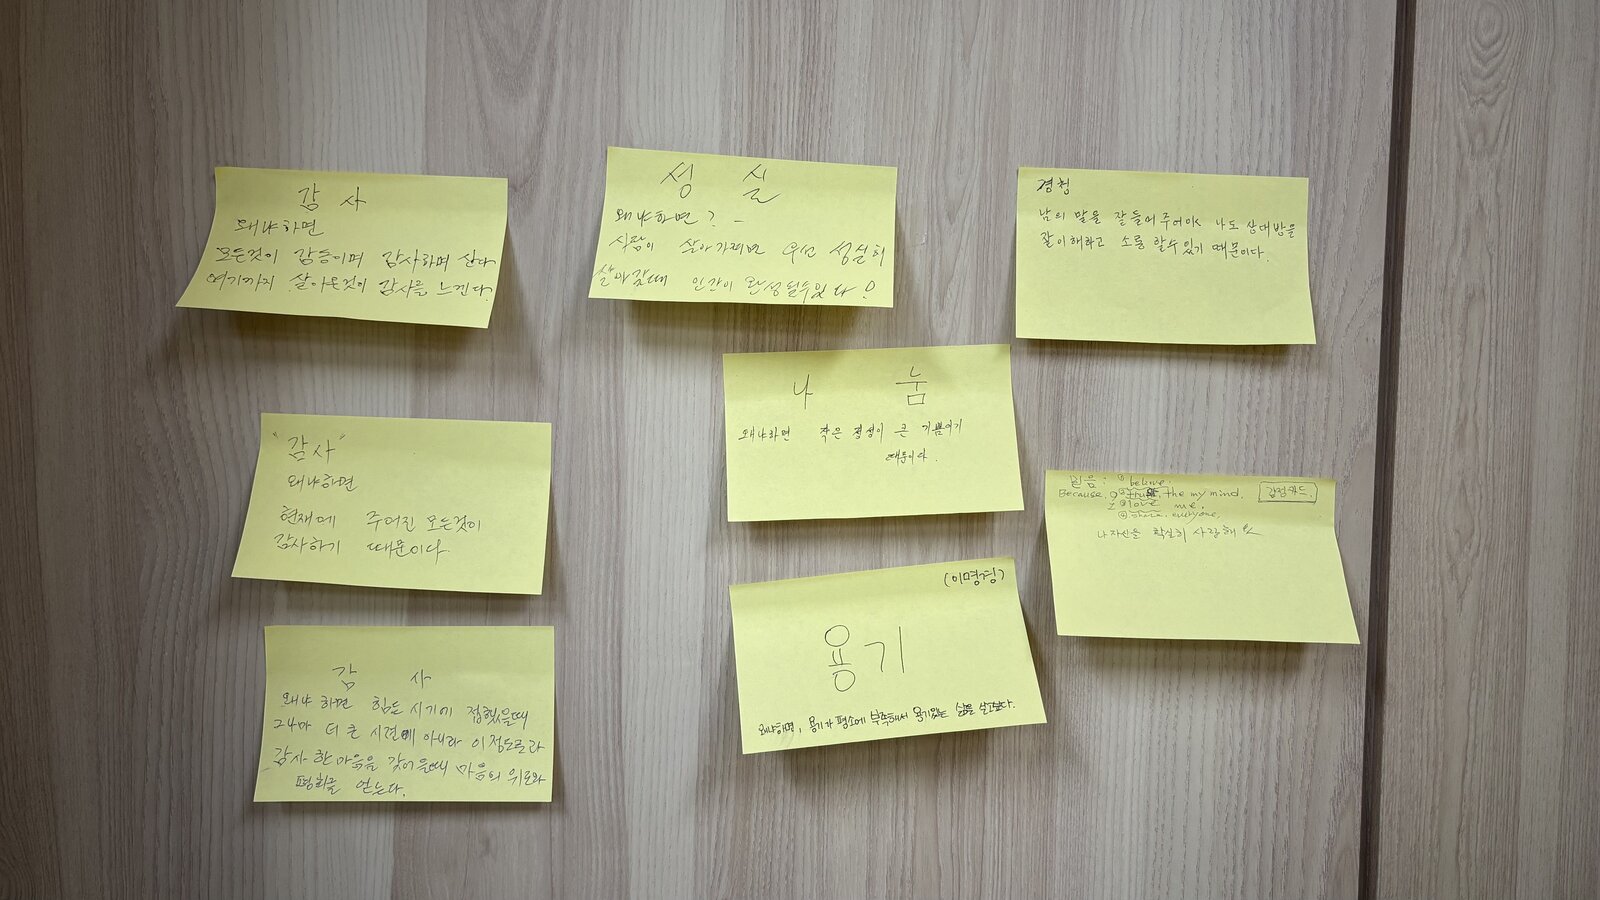 감 사
왜냐하면
모든것이 감동이며 감사하며 산다
여기까지 살아온것이 감사를 느낀다.
성 실
왜냐하면?
사람이 살아가려면 우선 성실히
살아갈때 인간이 완성될수있다!
경청
남의 말을 잘들어주어야 나도 상대방을
잘이해하고 소통할수있기 때문이다.
"감사"
왜냐하면
현재에 주어진 모든것이
감사하기 때문이다.
나 눔
왜냐하면 작은 정성이 큰 기쁨이기
때문이다.
믿음: ① belive.
Because, ② the my mind. 감정카드.
I ③ love me.
④ share, everyone,
나자신을 확실히 사랑해
감 사
왜냐하면 힘든 시기에 접했을때
그나마 더 큰 시련이 아니라 이정도로라
감사 한마음을 갖어을때 마음의 위로와
평화를 얻는다.
(이명경)
용기
왜냐하면, 용기가 평소에 부족해서 용기있는 삶을 살고싶다.